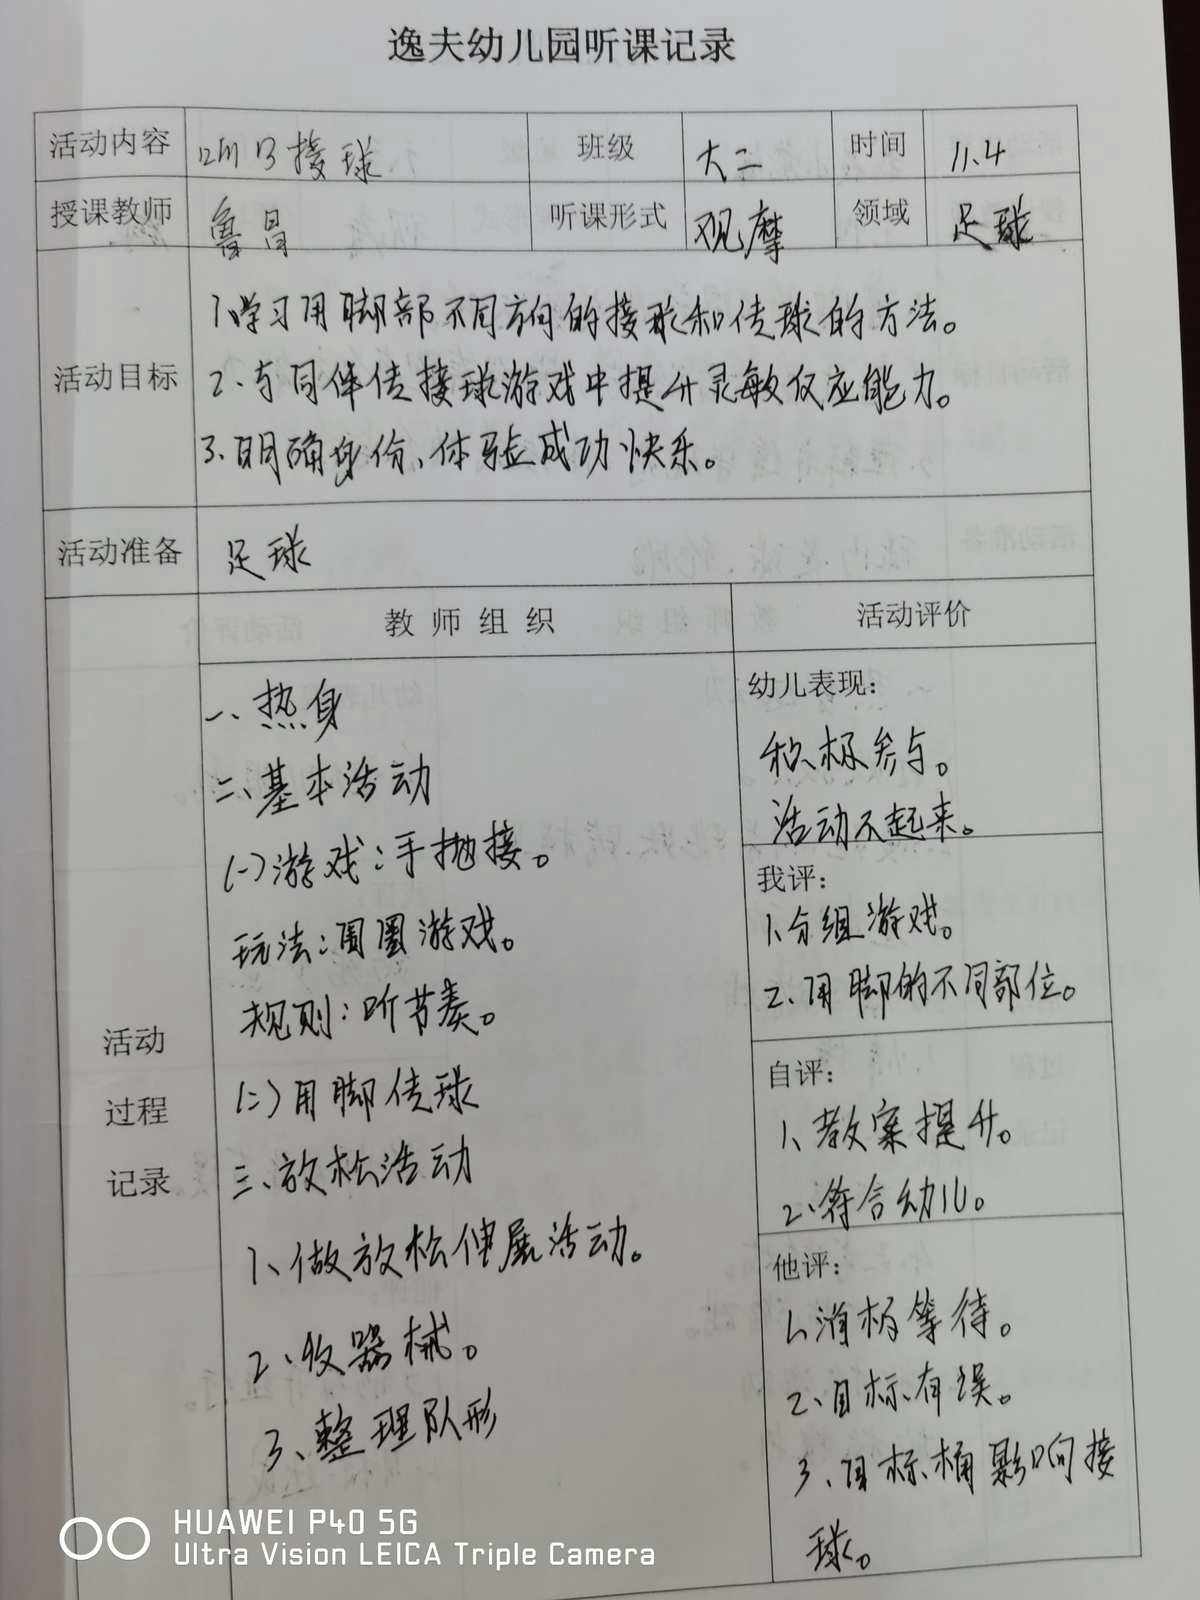 逸夫幼儿园听课记录
活动内容 接球 班级 大二 时间 11.4
授课教师 鲁昌 听课形式 观摩 领域 足球
活动目标
1.学习用脚部不同方向的接球和传球的方法。
2.与同伴传接球游戏中提升灵敏反应能力。
3.明确身份、体验成功快乐。
活动准备 足球
活动
过程
记录
教师组织
一、热身
二、基本活动
(一)游戏:手抛接。
玩法:围圈游戏。
规则:听节奏。
(二)用脚传球
三、放松活动
1、做放松伸展活动。
2、收器械。
3、整理队形
活动评价
幼儿表现:
积极参与。
活动不起来。
我评:
1.分组游戏。
2.用脚的不同部位。
自评:
1、教案提升。
2.符合幼儿。
他评:
1.消极等待。
2.目标有误。
3.目标桶影响接
球。
HUAWEI P40 5G
Ultra Vision LEICA Triple Camera